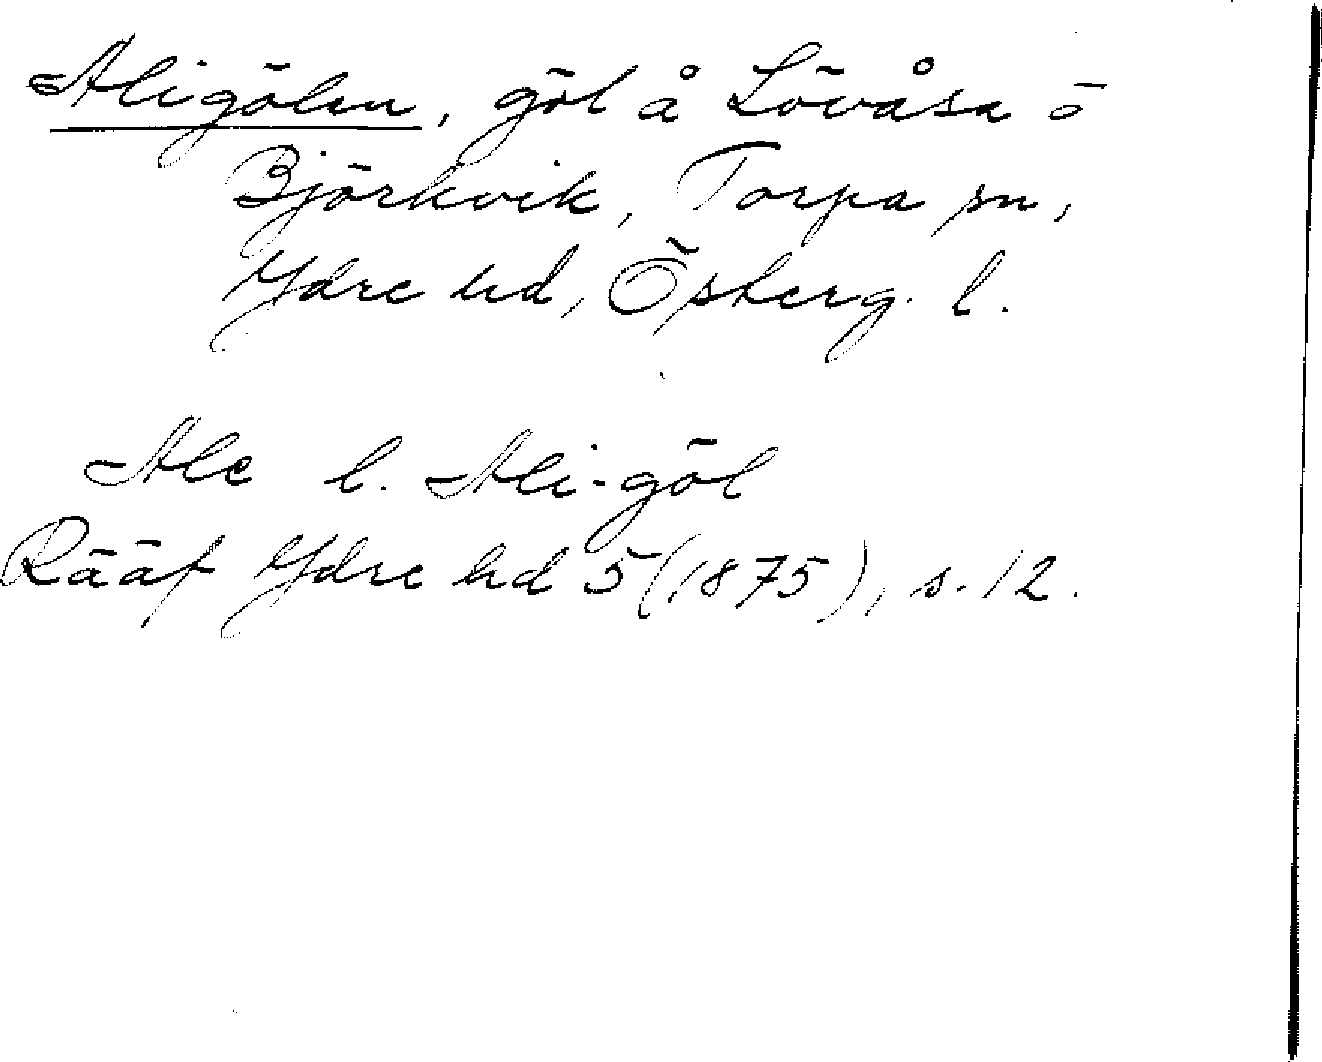 Aligölen, göl å Lövåsa ö
Björkvik, Torpa sn,
Ydre hd, Österg. l.
Ale l. Ali-göl
Rääf Ydre hd 5 (1875), s. 12.